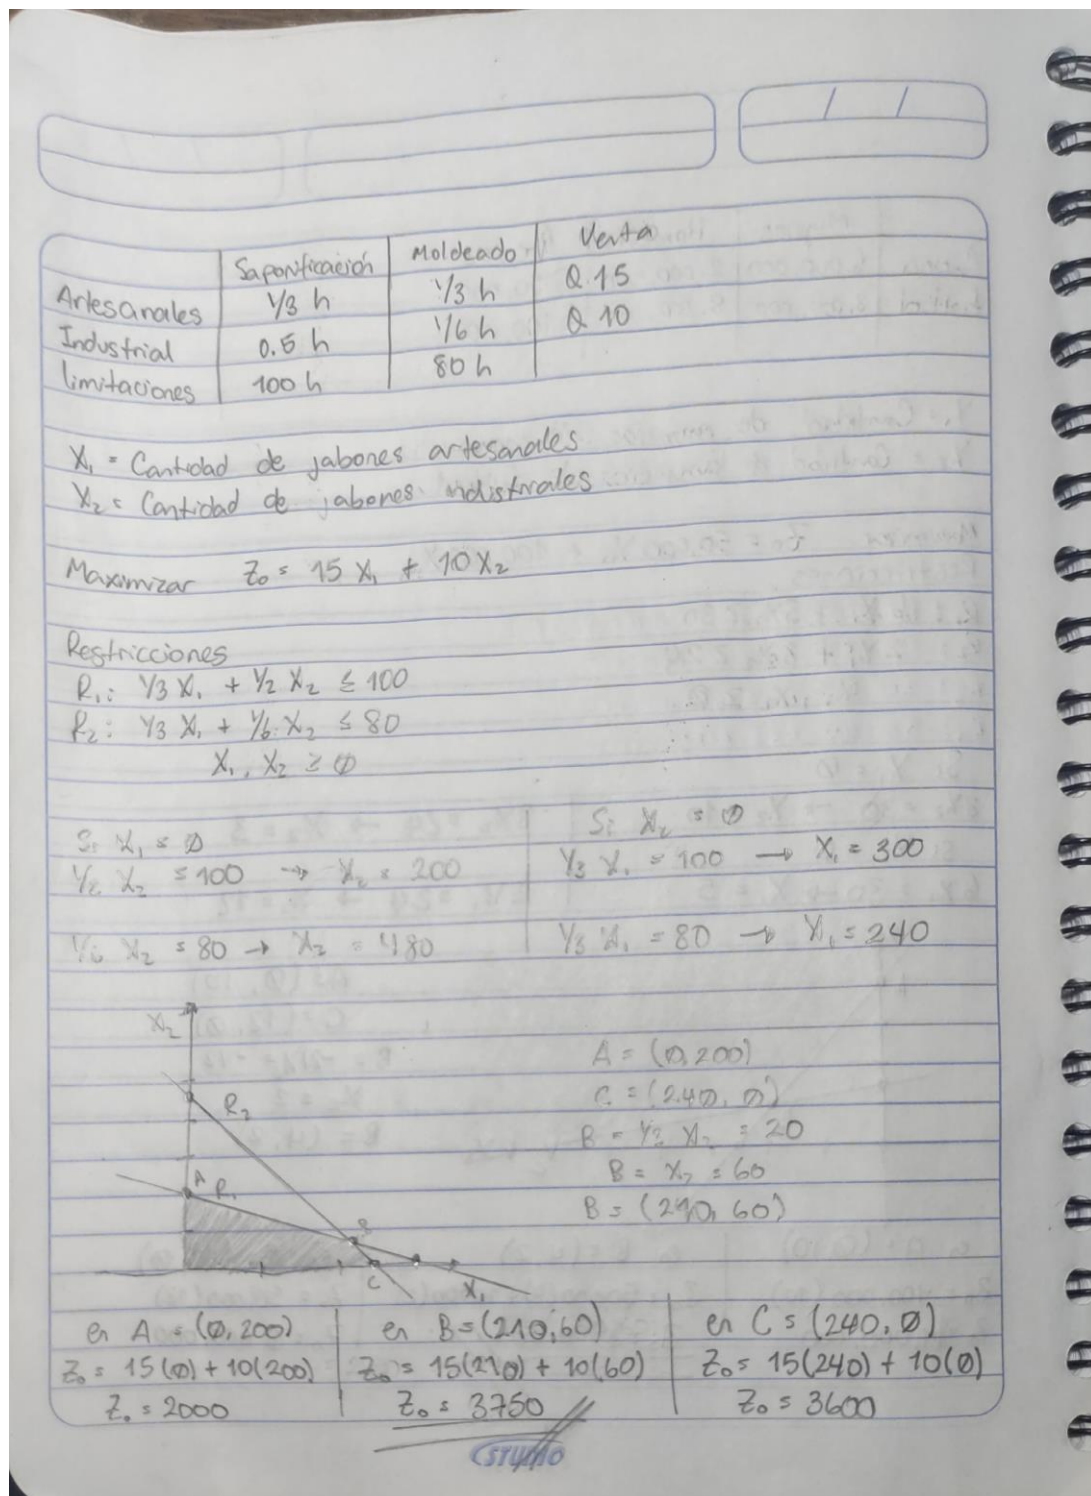 Saponificación Moldeado Venta
Artesanales 1/3 h 1/3 h Q.15
Industrial 0.5 h 1/6 h Q 10
limitaciones 100 h 80 h
X₁ = Cantidad de jabones artesanales
X₂ = Cantidad de jabones industriales
Maximizar Z₀ = 15 X₁ + 10 X₂
Restricciones
R₁: 1/3 X₁ + 1/2 X₂ ≤ 100
R₂: 1/3 X₁ + 1/6 X₂ ≤ 80
X₁, X₂ ≥ 0
Si X₁ = 0 Si X₂ = 0
1/2 X₂ = 100 → X₂ = 200 1/3 X₁ = 100 → X₁ = 300
1/6 X₂ = 80 → X₂ = 480 1/3 X₁ = 80 → X₁ = 240
X₂
A = (0, 200)
C = (240, 0)
R₂
B = 1/3 X₂ = 20
B = X₂ = 60
A R₁
B = (210, 60)
B
C
X₁
en A = (0, 200) en B = (210, 60) en C = (240, 0)
Z₀ = 15(0) + 10(200) Z₀ = 15(210) + 10(60) Z₀ = 15(240) + 10(0)
Z₀ = 2000 Z₀ = 3750 Z₀ = 3600
STUDIO